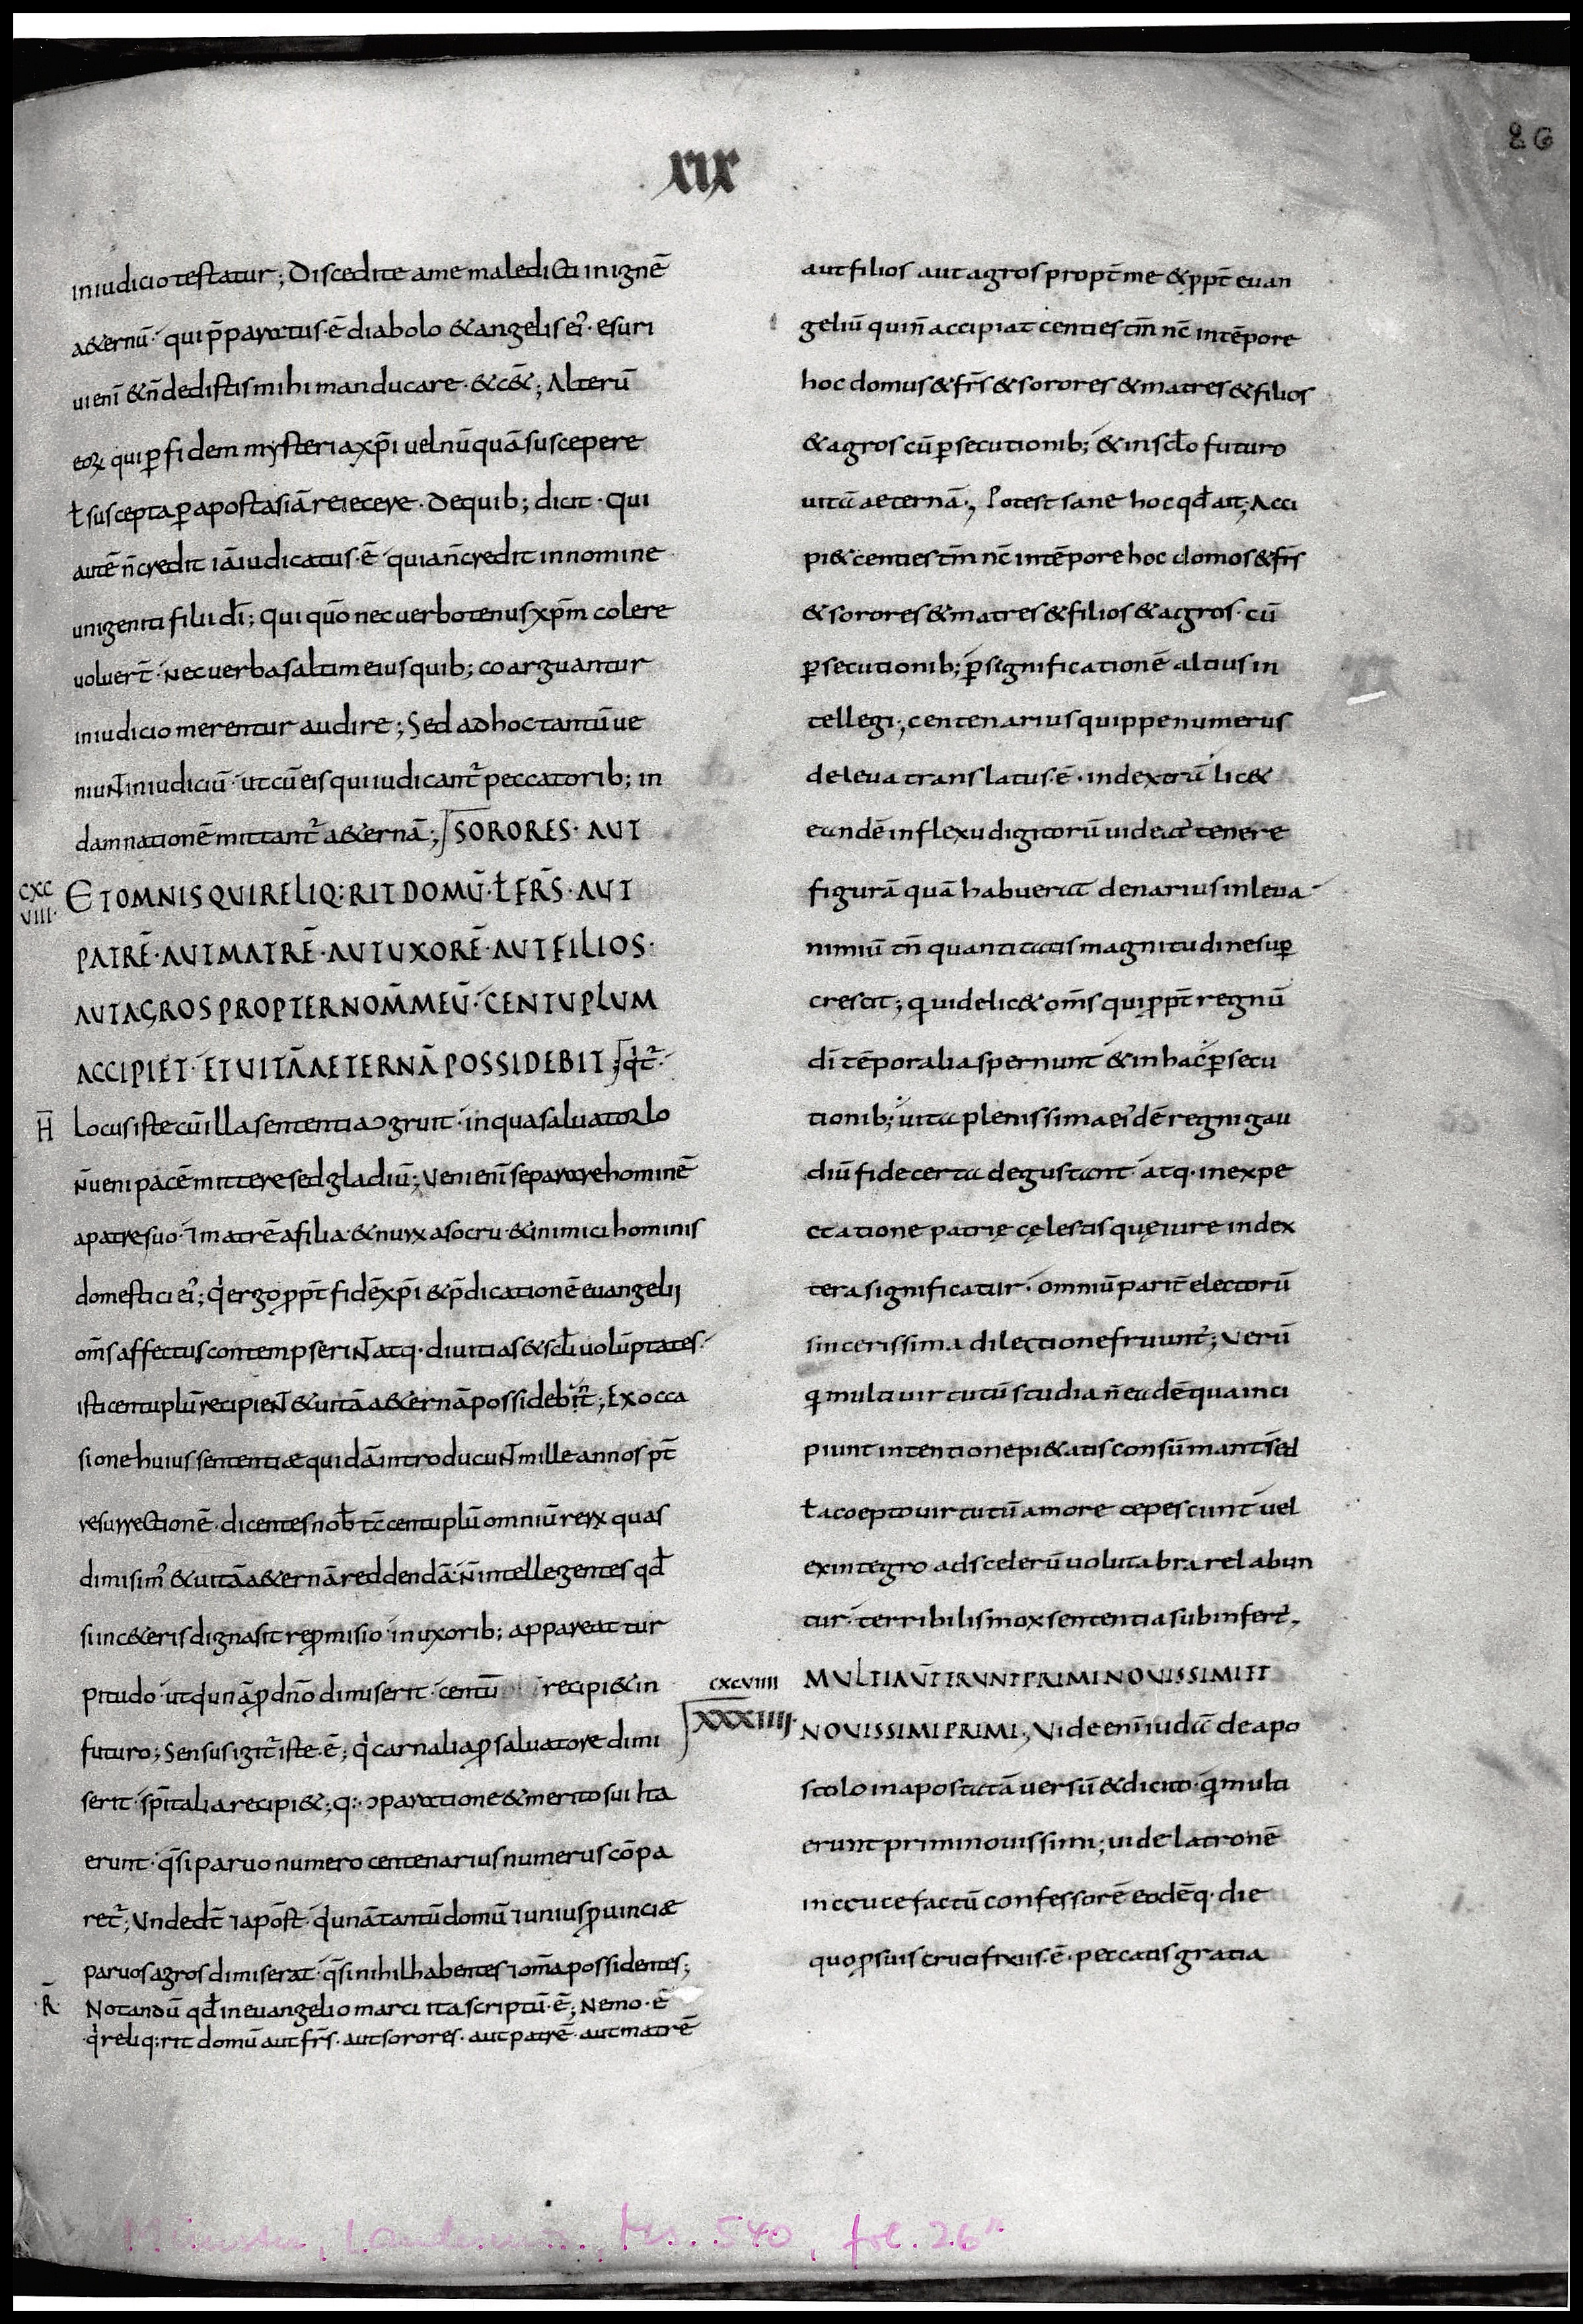 86
xix
iniudicio testatur; Discedite ame maledicti inignē
a&ernū· qui p̄paratus·ē diabolo & angelis ei᾽· esuri
ui enī & n̄ dedistis mihi manducare· & c&̄; Alterū
eoꝝ qui ꝑ fidem mysteria xp̄i uel nūquā suscepere
ł suscepta ꝑ apostasiā reiecere· De quib; dicit· Qui
autē n̄ credit iā iudicatus·ē quia n̄ credit in nomine
unigeniti filii dī; Qui quō nec uerbotenus xp̄m colere
uoluer̄t· nec uerba saltim eius quib; coarguantur
in iudicio merentur audire; Sed ad hoc tantū ue
niuNT in iudiciū· ut cū eis qui iudicant᾽ peccatorib; in
damnationē mittant᾽ a&ernā; SORORES· AUT
CXC VIII·
ET OMNIS QUI RELIQ:RIT DOMŪ· Ł FR̄S· AUT
PATRĒ· AUT MATRĒ· AUT UXORĒ· AUT FILIOS·
AUT AGROS PROPTER NOM̄ MEŪ· CENTUPLUM
ACCIPIET· ET UITĀ AETERNĀ POSSIDEBIT;
H̄
Locus iste cū illa sententia ɔgruit· in qua saluator lo
N̄ ueni pacē mittere sed gladiū; Veni enī separare hominē
a patre suo· ⁊ matrē a filia· & nurū a socru· & inimici hominis
domestici ei᾽; qͥ ergo ꝓpt̄ fidē xp̄i & p̄dicationē euangelii
om̄s affectus contempseriNT atq· diuitias & sc̄li uoluptates·
isti centuplū recipieNT & uitā a&ernā possideb̄t; Ex occa
sione huius sententiæ quidā introducuNT mille annos pt̄
resurrectionē· dicentes nob̄ tc̄ centuplū omniū rerū quas
dimisim᾽ & uitā a&ernā reddendā· N̄ intellegentes qd̄
si in c&eris digna sit repromisio· in uxorib; appareat tur
pitudo· ut qͥ unā ꝓ dn̄o dimiserit· centū recipi& in
futuro; Sensus igit᾽ iste·ē; qͥ carnalia ꝓ saluatore dimi
serit· sp̄italia recipi&; q: ɔparatione & merito sui ita
erunt· q̄si paruo numero centenarius numerus cōpa
ret᾽; Unde dt̄ ⁊ apōst· qͥ unā tantū domū ⁊ unius ꝓuinciæ
paruos agros dimiserat· q̄si nihil habentes ⁊ om̄a possidentes;
·R̄
Notandū qd̄ in euangelio marci ita scriptū·ē; Nemo·ē
qͥ reliq:rit domū aut fr̄s· aut sorores· aut patrē· aut matrē
aut filios aut agros propt̄ me & ꝓpt̄ euan
geliū qui n̄ accipiat centies tm̄ nc̄ in tēpore
hoc domus & fr̄s & sorores & matres & filios
& agros cū ꝑsecutionib; & in sc̄lo futuro
uitā aeternā; Potest sane hoc qd̄ ait; Acci
pi& centies tm̄ nc̄ in tēpore hoc domos & fr̄s
& sorores & matres & filios & agros· cū
ꝑsecutionib; ꝑ significationē altius in
tellegi; centenarius quippe numerus
de leua translatus·ē· in dextrū lic&
eandē in flexu digitorū uideat᾽ tenere
figurā quā habuerat denarius in leua·
nimiū tn̄ quantitatis magnitudine suꝑ
crescit; quidelic& om̄s qui ꝓpt̄ regnū
dī tēporalia spernunt & in hac ꝑsecu
tionib; uita plenissima ei᾽dē regni gau
diū fide certa degustant· atq· in expe
ctatione patrię cęlestis quę iure in dex
tera significatur· omniū parit̄ electorū
sincerissima dilectione fruunt᾽; Verū
q̄ multi uirtutū studia n̄ eadē qua inci
piunt intentione pi&atis consūmant sed
ł accepto uirtutū amore tepescunt· uel
ex integro ad scelerū uolutabra relabun
tur· terribilis mox sententia subinfert᾽;
CXCVIIII
XXXIIII·
MULTI AUT̄ ERUNT PRIMI NOUISSIMI ET
NOUISSIMI PRIMI; Vide enī iudā de apo
stolo in apostatā uersū & dicito· q̄ multi
erunt primi nouissimi; uide latronē
in cruce factū confessorē eodēq· die
quo ꝓ suis crucifixus·ē· peccatis gratia